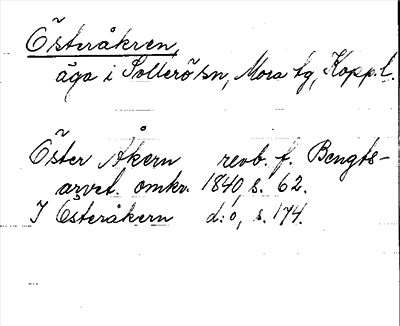 Österåkren,
äga i Sollerö sn, Mora tg, Kopp.l.
Öster Åkern revb. f. Bengts-
arvet. omkr. 1840, s. 62.
I Österåkern d:o, s. 174.